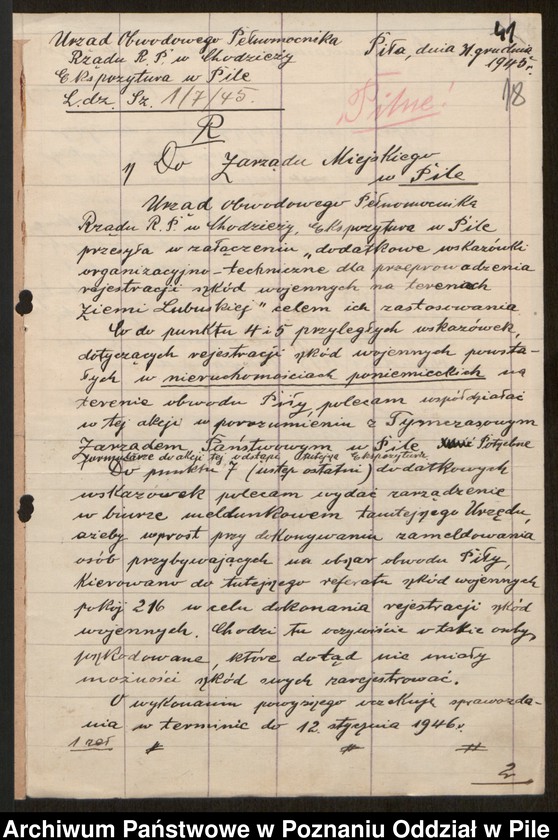 41
Urząd Obwodowego Pełnomocnika
Rządu R.P. w Chodzieży
Ekspozytura w Pile
L.dz. Sz. 1/7/45.
Piła, dnia 31 grudnia
1945 r.
18
Pilne!
R
1/ Do Zarządu Miejskiego
w Pile
Urząd Obwodowego Pełnomocnika
Rządu R.P. w Chodzieży, Ekspozytura w Pile
przesyła w załączeniu „dodatkowe wskazówki
organizacyjno-techniczne dla przeprowadzenia
rejestracji szkód wojennych na terenach
Ziemi Lubuskiej" celem ich zastosowania.
Co do punktu 4 i 5 przyległych wskazówek,
dotyczących rejestracji szkód wojennych powsta-
łych w nieruchomościach poniemieckich na
terenie obwodu Piły, polecam współdziałać
w tej akcji w porozumieniu z Tymczasowym
Zarządem Państwowym w Pile Potrzebne
formularze do akcji tej odstąpi tutejsza Ekspozytura
Do punktu 7 (ustęp ostatni) dodatkowych
wskazówek polecam wydać zarządzenie
w biurze meldunkowem tamtejszego Urzędu,
ażeby wprost przy dokonywaniu zameldowania
osób przybywających na obszar obwodu Piły,
kierowano do tutejszego referatu szkód wojennych
pokój 216 w celu dokonania rejestracji szkód
wojennych. Chodzi tu oczywiście o takie osoby
poszkodowane, które dotąd nie miały
możności szkód swych zarejestrować.
O wykonaniu powyższego oczekuję sprawozda-
nia w terminie do 12. stycznia 1946 r.
1 zał # # #
2
Archiwum Państwowe w Poznaniu Oddział w Pile